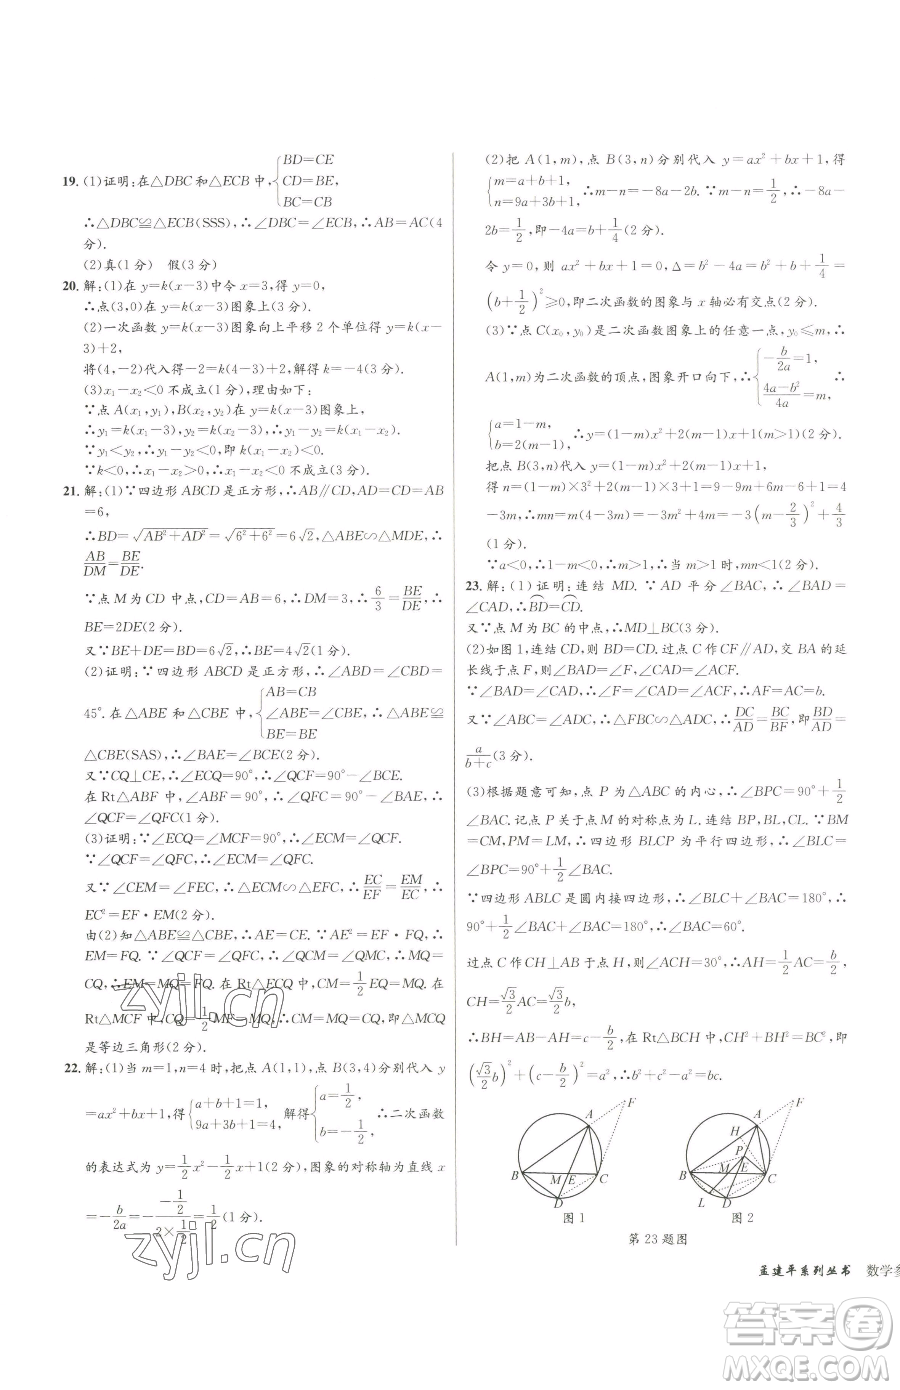 19. (1)证明:在△DBC和△ECB中,{BD=CE
CD=BE,
BC=CB
∴△DBC≌△ECB(SSS),∴∠DBC=∠ECB,∴AB=AC(4
分).
(2)真(1分) 假(3分)
20. 解:(1)在y=k(x-3)中令x=3,得y=0,
∴点(3,0)在y=k(x-3)图象上(3分).
(2)一次函数y=k(x-3)图象向上平移2个单位得y=k(x-
3)+2,
将(4,-2)代入得-2=k(4-3)+2,解得k=-4(3分).
(3)x₁-x₂<0不成立(1分),理由如下:
∵点A(x₁,y₁),B(x₂,y₂)在y=k(x-3)图象上,
∴y₁=k(x₁-3),y₂=k(x₂-3),∴y₁-y₂=k(x₁-x₂).
∵y₁<y₂,∴y₁-y₂<0,∴k(x₁-x₂)<0.
∵k<0,∴x₁-x₂>0,∴x₁-x₂<0不成立(3分).
21. 解:(1)∵四边形ABCD是正方形,∴AB∥CD,AD=CD=AB
=6,
∴BD=√(AB²+AD²)=√(6²+6²)=6√2,△ABE∽△MDE,∴
AB/DM=BE/DE.
∵点M为CD中点,CD=AB=6,∴DM=3,∴6/3=BE/DE,∴
BE=2DE(2分).
又∵BE+DE=BD=6√2,∴BE=4√2(1分).
(2)证明:∵四边形ABCD是正方形,∴∠ABD=∠CBD=
45°.在△ABE和△CBE中,{AB=CB
∠ABE=∠CBE,∴△ABE≌
BE=BE
△CBE(SAS),∴∠BAE=∠BCE(2分).
又∵CQ⊥CE,∴∠ECQ=90°,∴∠QCF=90°-∠BCE.
在Rt△ABF中,∠AFB=90°,∴∠QFC=90°-∠BAE,∴
∠QCF=∠QFC(1分).
(3)证明:∵∠ECQ=∠MCF=90°,∴∠ECM=∠QCF.
∵∠QCF=∠QFC,∴∠QFC=∠ECM.
又∵∠CEM=∠FEC,∴△ECM∽△EFC,∴EC/EF=EM/EC,∴
EC²=EF·EM(2分).
由(2)知△ABE≌△CBE,∴AE=CE.∵AE²=EF·MQ,∴
EM=FQ.∵∠QCF=∠QFC,∴∠QCM=∠QMC,∴MQ=
CQ,∴EM=MQ=FQ.在Rt△ECQ中,CM=1/2EQ=MQ.在
Rt△MCF中,CQ=1/2MF=MQ,∴CM=MQ=CQ,∴△MCQ
是等边三角形(2分).
22. 解:(1)当m=1,n=4时,把点A(1,1),点B(3,4)分别代入y
=ax²+bx+1,得{a+b+1=1,
9a+3b+1=4,解得{a=1/2,
b=-1/2,∴二次函数
的表达式为y=1/2x²-1/2x+1(2分),图象的对称轴为直线x
=-b/2a=-(-1/2)/(2×1/2)=1/2(1分).
(2)把A(1,m),点B(3,n)分别代入y=ax²+bx+1,得
{m=a+b+1,
n=9a+3b+1,∴m-n=-8a-2b.∵m-n=1/2,∴-8a-
2b=1/2,即-4a=b+1/4(2分).
令y=0,则ax²+bx+1=0,Δ=b²-4a=b²+b+1/4=
(b+1/2)²≥0,即二次函数的图象与x轴必有交点(2分).
(3)∵点C(x₀,y₀)是二次函数图象上的任意一点,y₀≤m,∴
A(1,m)为二次函数的顶点,图象开口向下,∴{-b/2a=1,
(4a-b²)/4a=m, ∴
{a=1-m,
b=2(m-1),∴y=(1-m)x²+2(m-1)x+1(2分).
把点B(3,n)代入y=(1-m)x²+2(m-1)x+1,
得n=(1-m)×3²+2(m-1)×3+1=9-9m+6m-6+1=4
-3m,∴mn=m(4-3m)=-3m²+4m=-3(m-2/3)²+4/3
(1分).
∵a<0,∴1-m<0,∴m>1,∴当m>1时,mn<1(2分).
23. 解:(1)证明:连结MD.∵AD平分∠BAC,∴∠BAD=
∠CAD,∴BD=CD.
又∵点M为BC的中点,∴MD⊥BC(3分).
(2)如图1,连结CD,则BD=CD.过点C作CF∥AD,交BA的延
长线于点F,则∠BAD=∠F,∠CAD=∠ACF.
∵∠BAD=∠CAD,∴∠F=∠CAD=∠ACF,∴AF=AC=b.
又∵∠ABC=∠ADC,∴△FBC∽△ADC,∴DC/AD=BC/BF,即BD/AD=
a/(b+c)(3分).
(3)根据题意可知,点P为△ABC的内心,∴∠BPC=90°+1/2
∠BAC.记点P关于点M的对称点为L.连结BP,BL,CL.∵BM
=CM,PM=LM,∴四边形BLCP为平行四边形,∴∠BLC=
∠BPC=90°+1/2∠BAC.
∵四边形ABLC是圆内接四边形,∴∠BLC+∠BAC=180°,∴
90°+1/2∠BAC+∠BAC=180°,∴∠BAC=60°(2分).
过点C作CH⊥AB于点H,则∠ACH=30°,∴AH=1/2AC=b/2,
CH=√3/2AC=√3/2b,
∴BH=AB-AH=c-b/2,在Rt△BCH中,CH²+BH²=BC²,即
(√3/2b)²+(c-b/2)²=a²,∴b²+c²-a²=bc.
A F B M E C D
图1
H A F P M E B C L D
图2
第23题图
孟建平系列丛书 数学参
zyjl.cn
zyjl.cn
答案圈
MXQE.COM